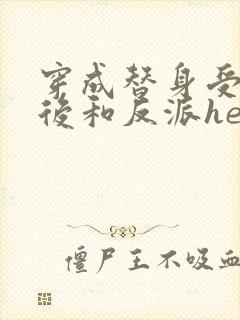 穿成替身受
後和反派he
僵尸王不吸血